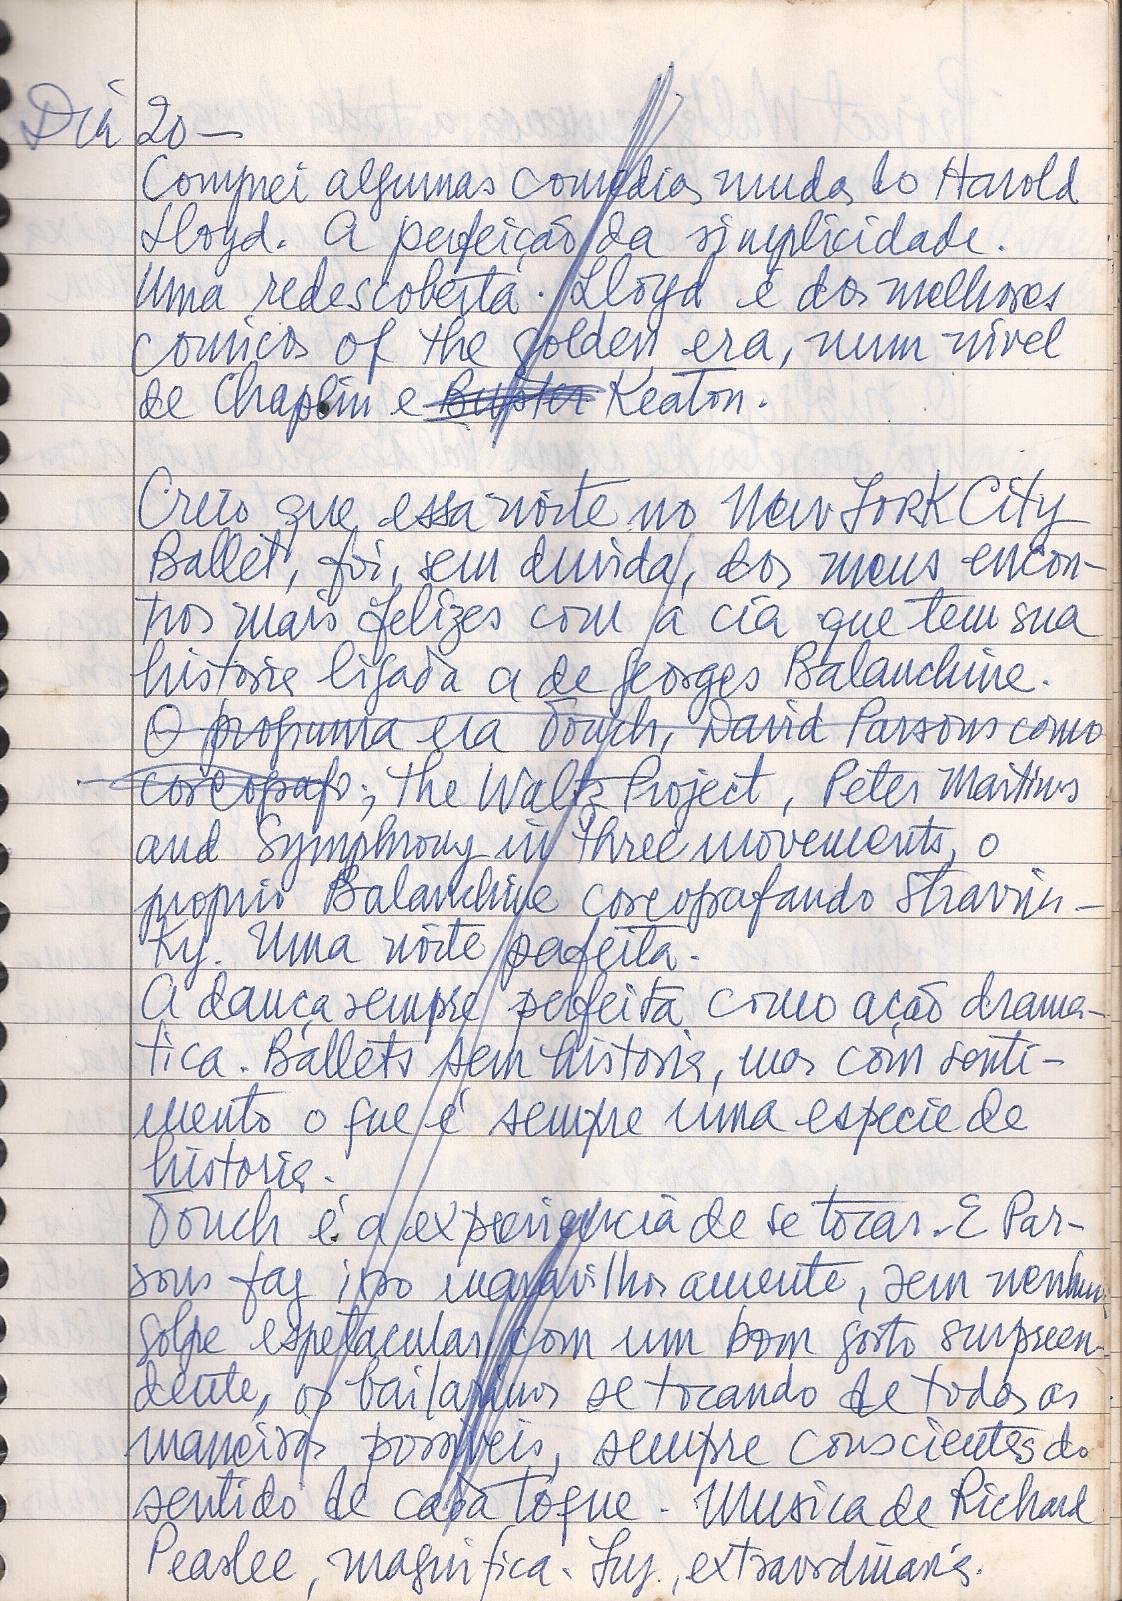 Dia 20 —
Comprei algumas comedias mudas do Harold
Lloyd. A perfeição da simplicidade.
Uma redescoberta. Lloyd é dos melhores
comicos of the golden era, num nivel
de Chaplin e Buster Keaton.
Creio que essa noite no New York City
Ballet, foi, sem duvida, dos meus encon-
tros mais felizes com a cia que tem sua
historia ligada a de Georges Balanchine.
O programa era Touch, David Parsons como
coreografo; The Waltz Project, Peter Martins
and Symphony in three movements, o
proprio Balanchine coreografando Stravins-
ky. Uma noite perfeita.
A dança sempre perfeita como ação drama-
tica. Ballets sem historia, mas com senti-
mento o que é sempre uma especie de
historia.
Touch é a experiencia de se tocar. E Par-
sons faz isso maravilhosamente, sem nenhum
golpe espetacular, com um bom gosto surpreen-
dente, os bailarinos se tocando de todas as
maneiras possiveis, sempre conscientes do
sentido de cada toque. Musica de Richard
Peaslee, magnifica. Luz, extraordinaria.